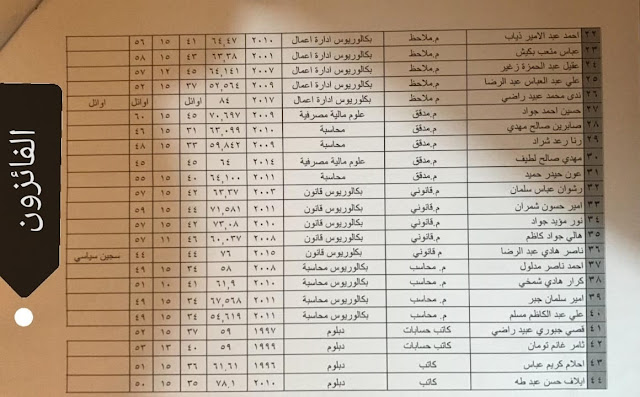 الفائزون
٢٢ احمد عبد الامير ذياب م.ملاحظ بكالوريوس ادارة اعمال ٢٠١٠ ٦٤,٤٧ ٤١ ١٥ ٥٦
٢٣ عباس متعب بكيش م.ملاحظ بكالوريوس ادارة اعمال ٢٠٠١ ٦٣,٣٨ ٤٣ ١٥ ٥٨
٢٤ عقيل عبد الحمزة زغير م.ملاحظ بكالوريوس ادارة اعمال ٢٠٠٧ ٦٤,١٤١ ٤٥ ١٢ ٥٧
٢٥ علي عبد العباس عبد الرضا م.ملاحظ بكالوريوس ادارة اعمال ٢٠٠٩ ٥٢,٥٦٤ ٣٧ ١٥ ٥٢
٢٦ ندى محمد عبيد راضي م.ملاحظ بكلوريوس ادارة اعمال ٢٠١٧ ٨٤ اوائل اوائل اوائل اوائل
٢٧ حسين احمد جواد م.مدقق علوم مالية مصرفية ٢٠٠٩ ٧٠,٦٩٧ ٤٥ ١٥ ٦٠
٢٨ صابرين صالح مهدي م.مدقق محاسبة ٢٠١٠ ٦٣,٠٩٩ ٣١ ١٥ ٤٦
٢٩ رنا رعد شراد م.مدقق محاسبة ٢٠٠٩ ٥٩,٨٤٢ ٣٣ ١٥ ٤٨
٣٠ مهدي صالح لطيف م.مدقق علوم مالية مصرفية ٢٠١٤ ٦٤ ٤٥ ٤٥
٣١ عون حيدر حميد م.مدقق محاسبة ٢٠١١ ٦٤,١٠٠ ٤٠ ١٥ ٥٥
٣٢ رشوان عباس سلمان م.قانوني بكالوريوس قانون ٢٠٠٣ ٦٣,٣٧ ٤٢ ١٥ ٥٧
٣٣ امير حسون شمران م.قانوني بكالوريوس قانون ٢٠١١ ٧١,٥٨١ ٤٤ ١٥ ٥٩
٣٤ نور مؤيد جواد م.قانوني بكالوريوس قانون ٢٠١٠ ٧٣,٠٨ ٤٢ ١٥ ٥٧
٣٥ هالي جواد كاظم م.قانوني بكالوريوس قانون ٢٠٠٨ ٦٠,٠٣٧ ٤٦ ١١ ٥٧
٣٦ ناصر هادي عبد الرضا م.قانوني بكلوريوس قانون ٢٠١٥ ٧٦ ٤٤ ٤٤ سجين سياسي
٣٧ احمد ناصر مدلول م. محاسب بكالوريوس محاسبة ٢٠٠٨ ٥٨ ٣٤ ١٥ ٤٩
٣٨ كرار هادي شمخي م. محاسب بكالوريوس محاسبة ٢٠١٠ ٦١,٩ ٤١ ١٠ ٥١
٣٩ امير سلمان جبر م. محاسب بكالوريوس محاسبة ٢٠١١ ٦٧,٥٦٨ ٣٤ ١٥ ٤٩
٤٠ علي عبد الكاظم مسلم م. محاسب بكالوريوس محاسبة ٢٠١١ ٥٤,٦١٩ ٣٤ ١٥ ٤٩
٤١ قصي جبوري عبيد راضي كاتب حسابات دبلوم ١٩٩٧ ٥٩ ٣٧ ١٥ ٥٢
٤٢ ثامر غانم تومان كاتب حسابات دبلوم ١٩٩٩ ٥٩ ٤٠ ١٣ ٥٣
٤٣ احلام كريم عباس كاتب دبلوم ١٩٩٦ ٦١,٦١ ٣٦ ١٥ ٥١
٤٤ ايلاف حسن عبد طه كاتب دبلوم ٢٠١٠ ٧٨,١ ٣٥ ١٥ ٥٠